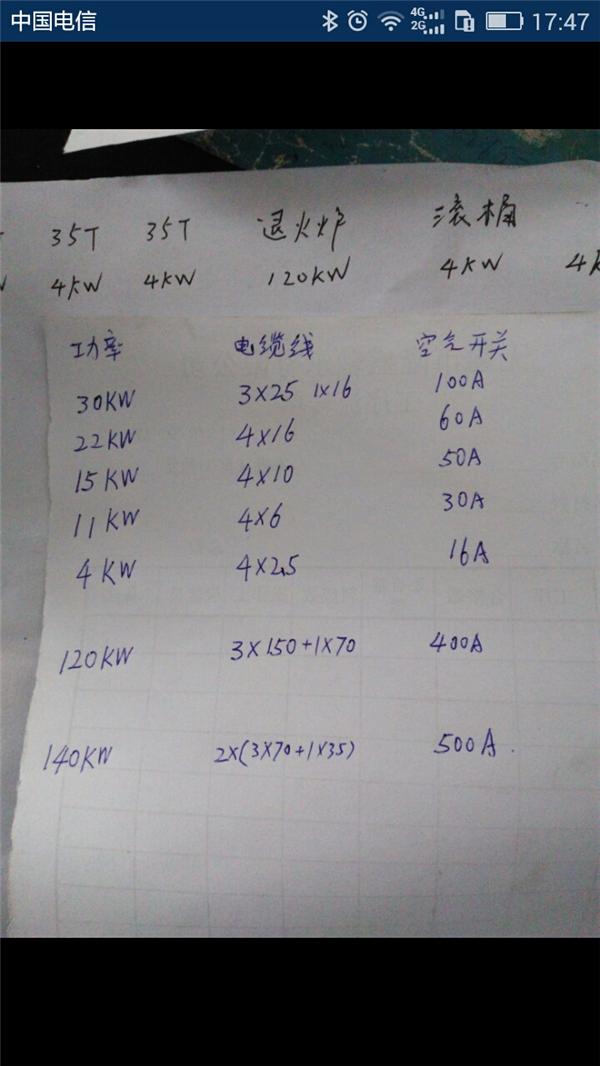 中国电信 4G 2G 17:47
35T 35T 退火炉 滚桶
4KW 4KW 120KW 4KW
功率 电缆线 空气开关
30KW 3×25 1×16 100A
22KW 4×16 60A
15KW 4×10 50A
11KW 4×6 30A
4KW 4×2.5 16A
120KW 3×150+1×70 400A
140KW 2×(3×70+1×35) 500A.